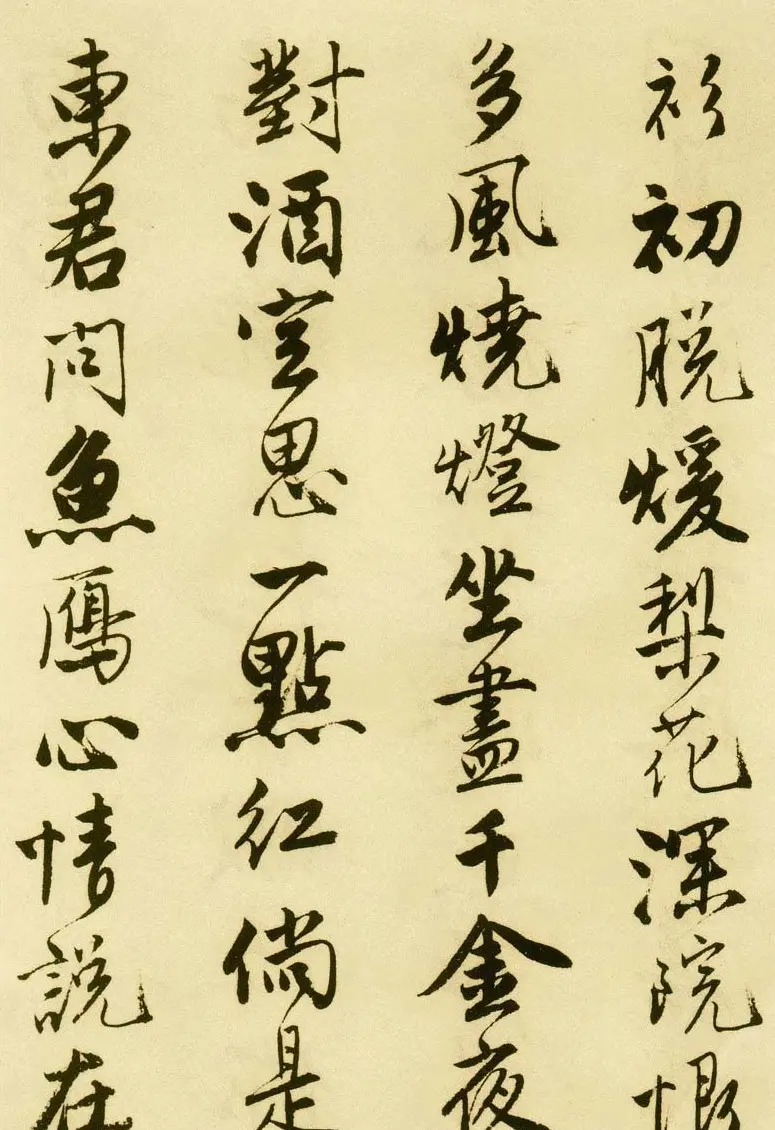 衫初脱煖梨花深院恨
多風燒燈坐盡千金夜
對酒空思一點紅倘是
東君問魚鴈心情説在